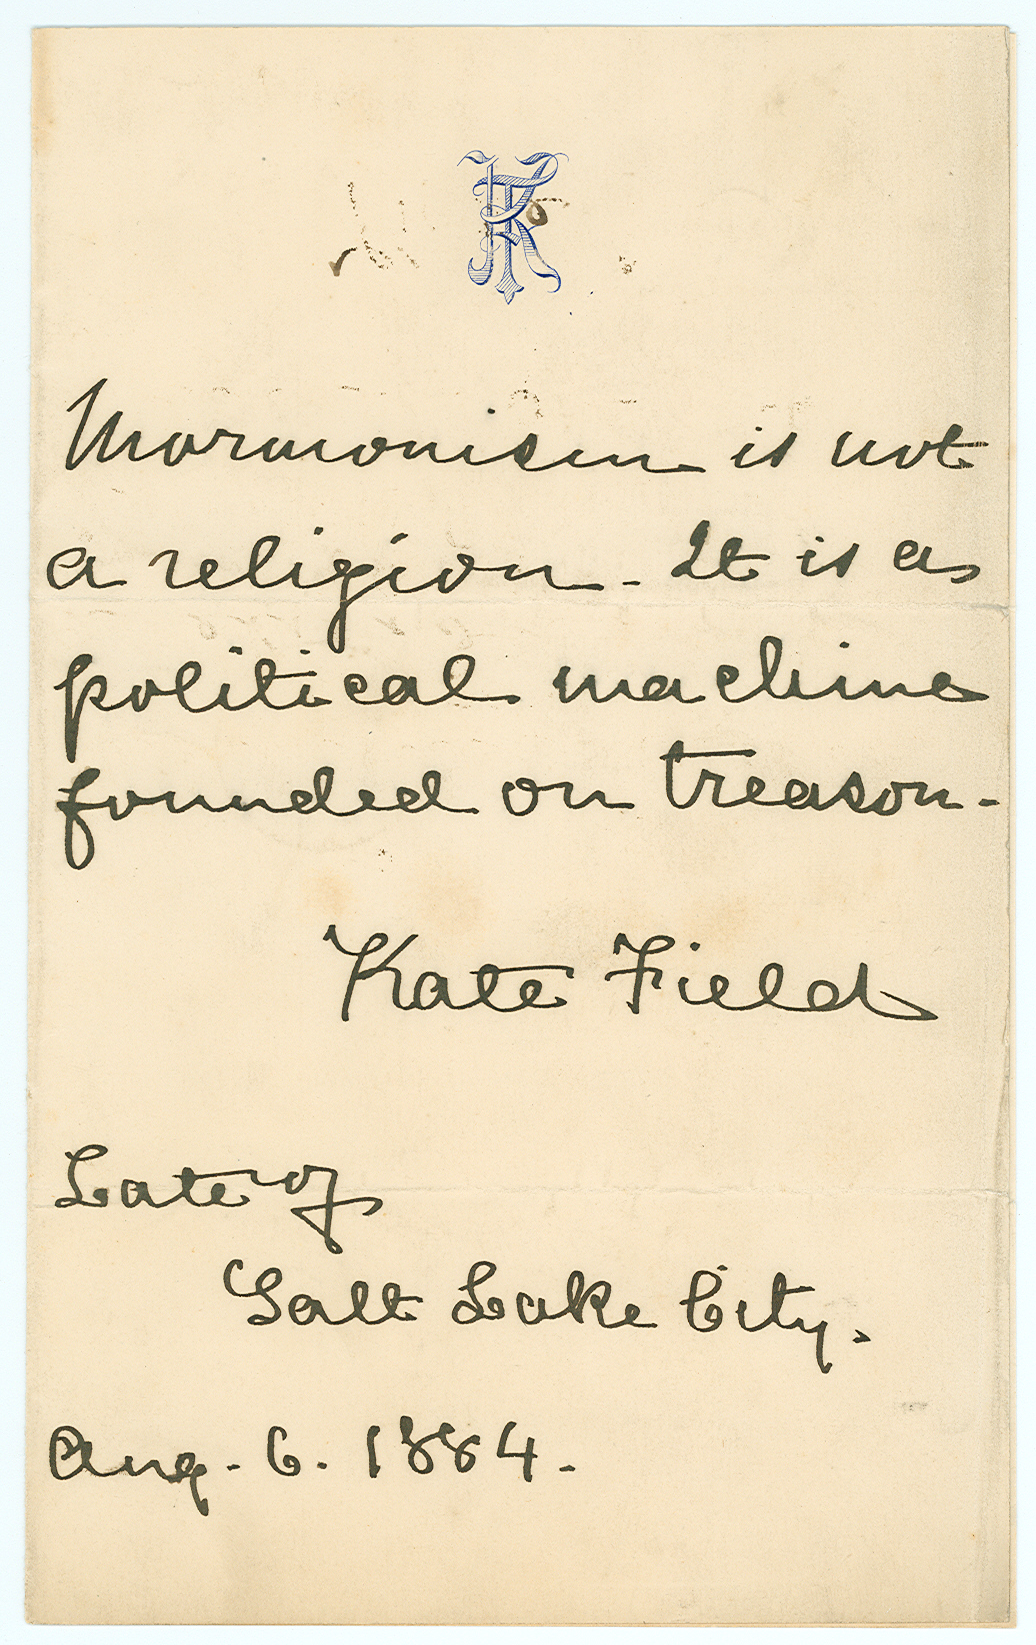 KF
Mormonism is not
a religion. It is a
political machine
founded on treason.
Kate Field
Late of
Salt Lake City.
Aug. 6. 1884.